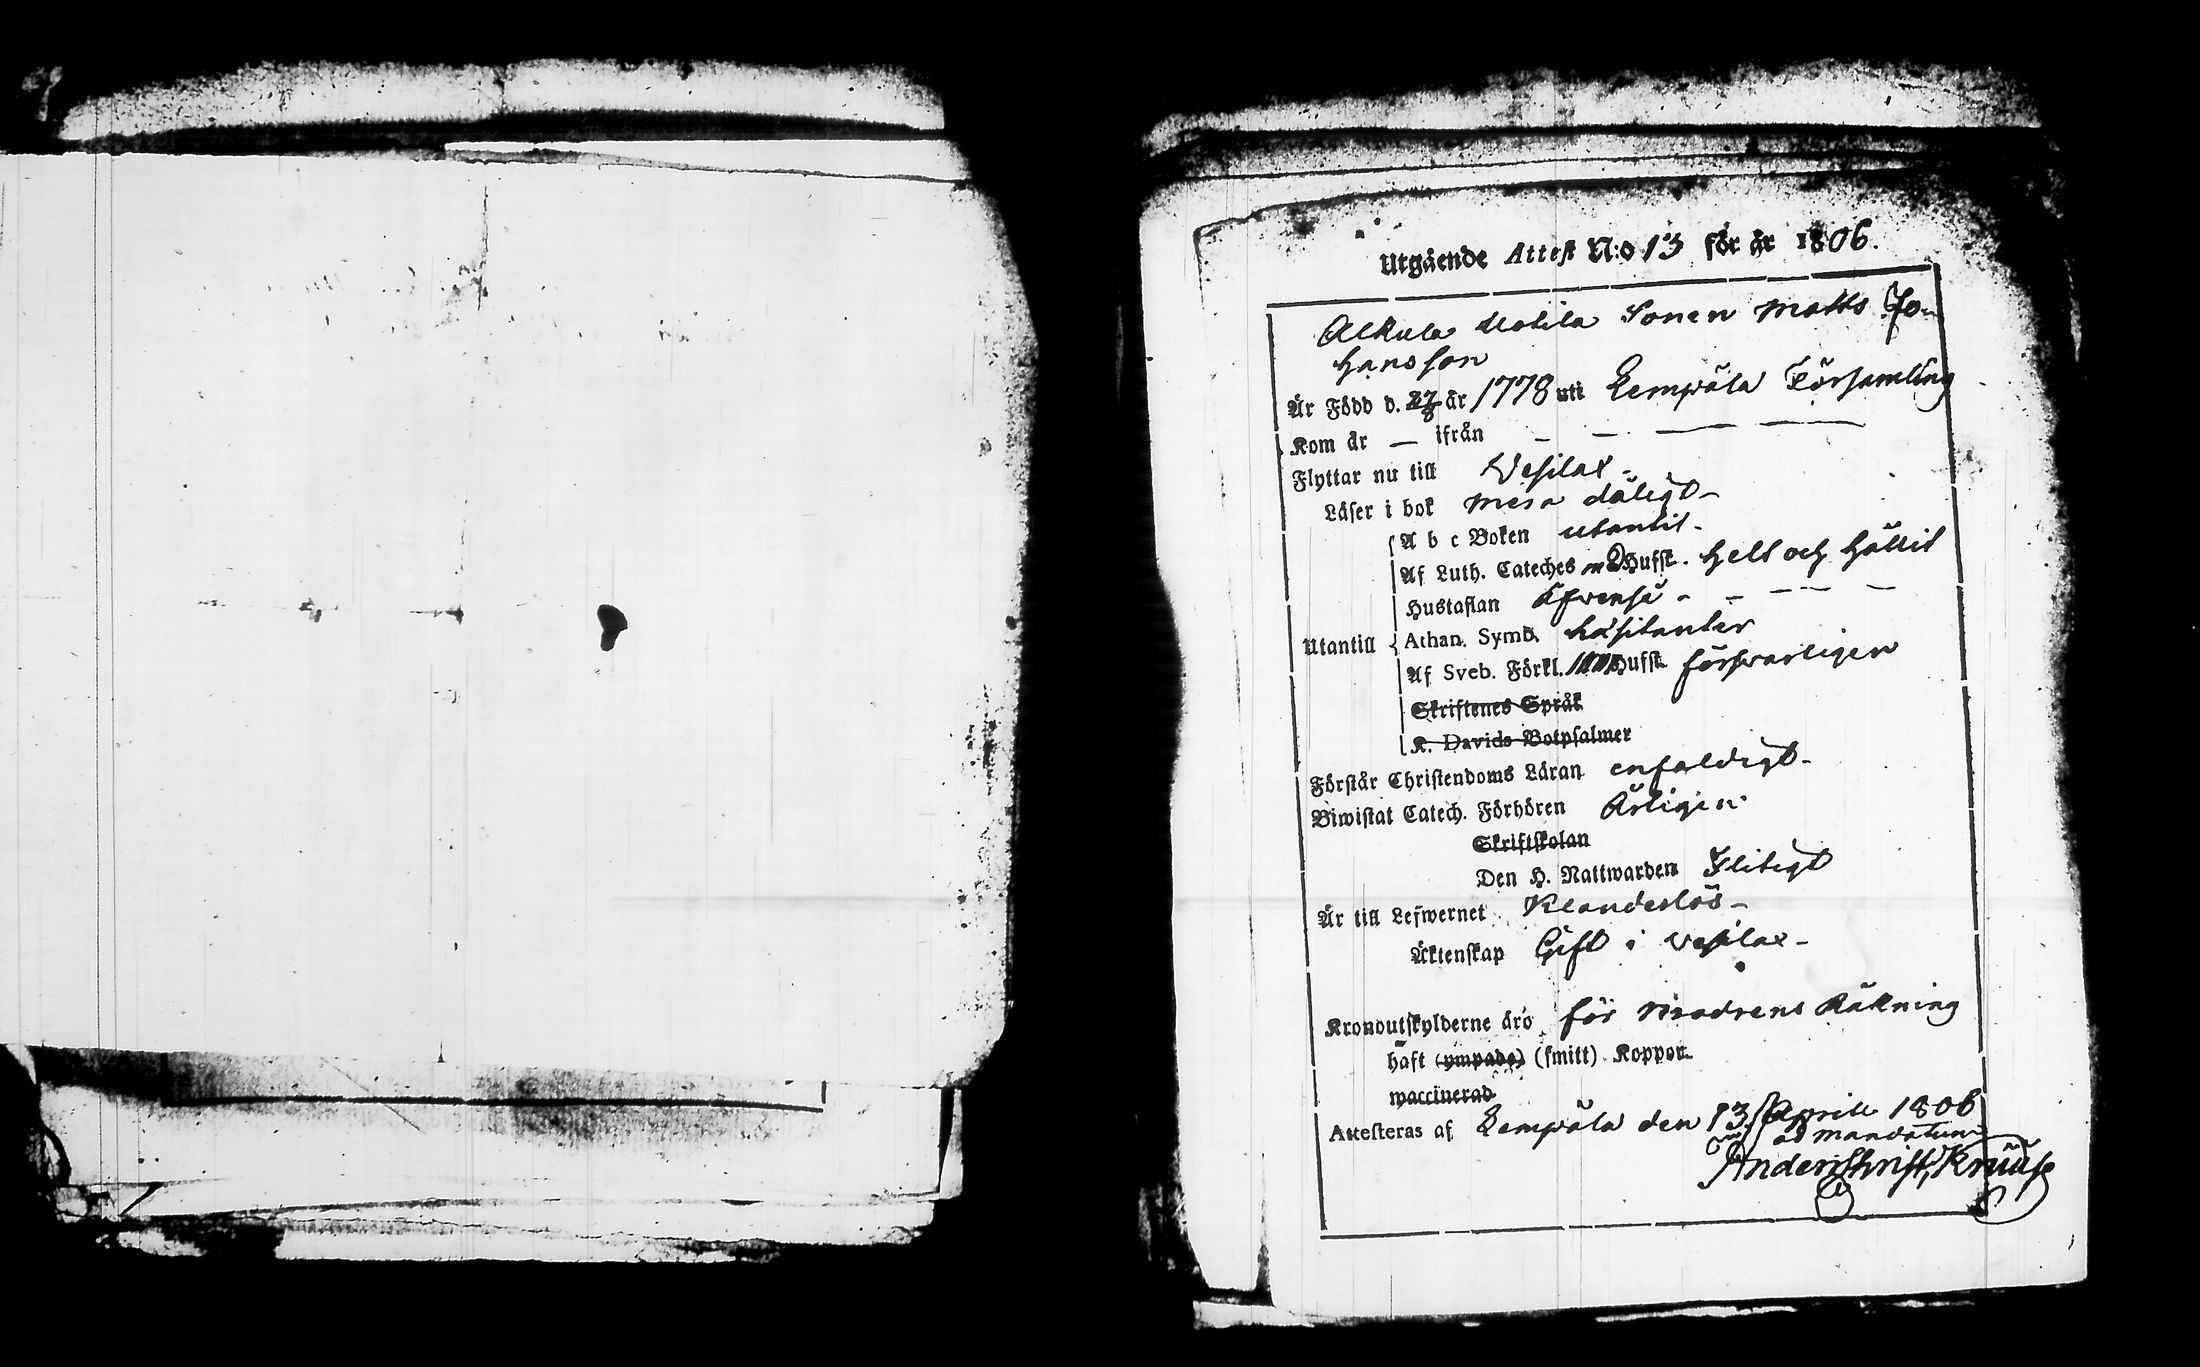 Utgående Attest N:o 13 för år 1806.
Alkula Uotila Sonen Matts Jo-
hansson
Är Född d. 27/8 år 1778 uti Lempäla Församling
Kom år — ifrån — — — —
Flyttar nu till Vesilax -
Läser i bok mera dåligt -
A b c Boken utantil -
Af Luth. Cateches Hufst. helt och hållit
Hustaflan äfvense - - - - -
Utantill Athan. Symb. häsitanter
Af Sveb. Förkl. Hufst. försvarligen
Skriftenes Språk
K. Davids Botpsalmer
Förstår Christendoms Läran enfaldigt -
Biwistat Catech. Förhören Årligen
Skriftskolan
Den H. Nattwarden Flitigt
Är till Lefwernet Klanderlös -
Äktenskap Gift i Vesilax -
Kronoutskylderne äro för Modrens Räkning
haft (ympade) (smitt) Koppor.
waccinerad
Attesteras af Lempäla den 13 Aprill 1806
ad mandatum
Krause